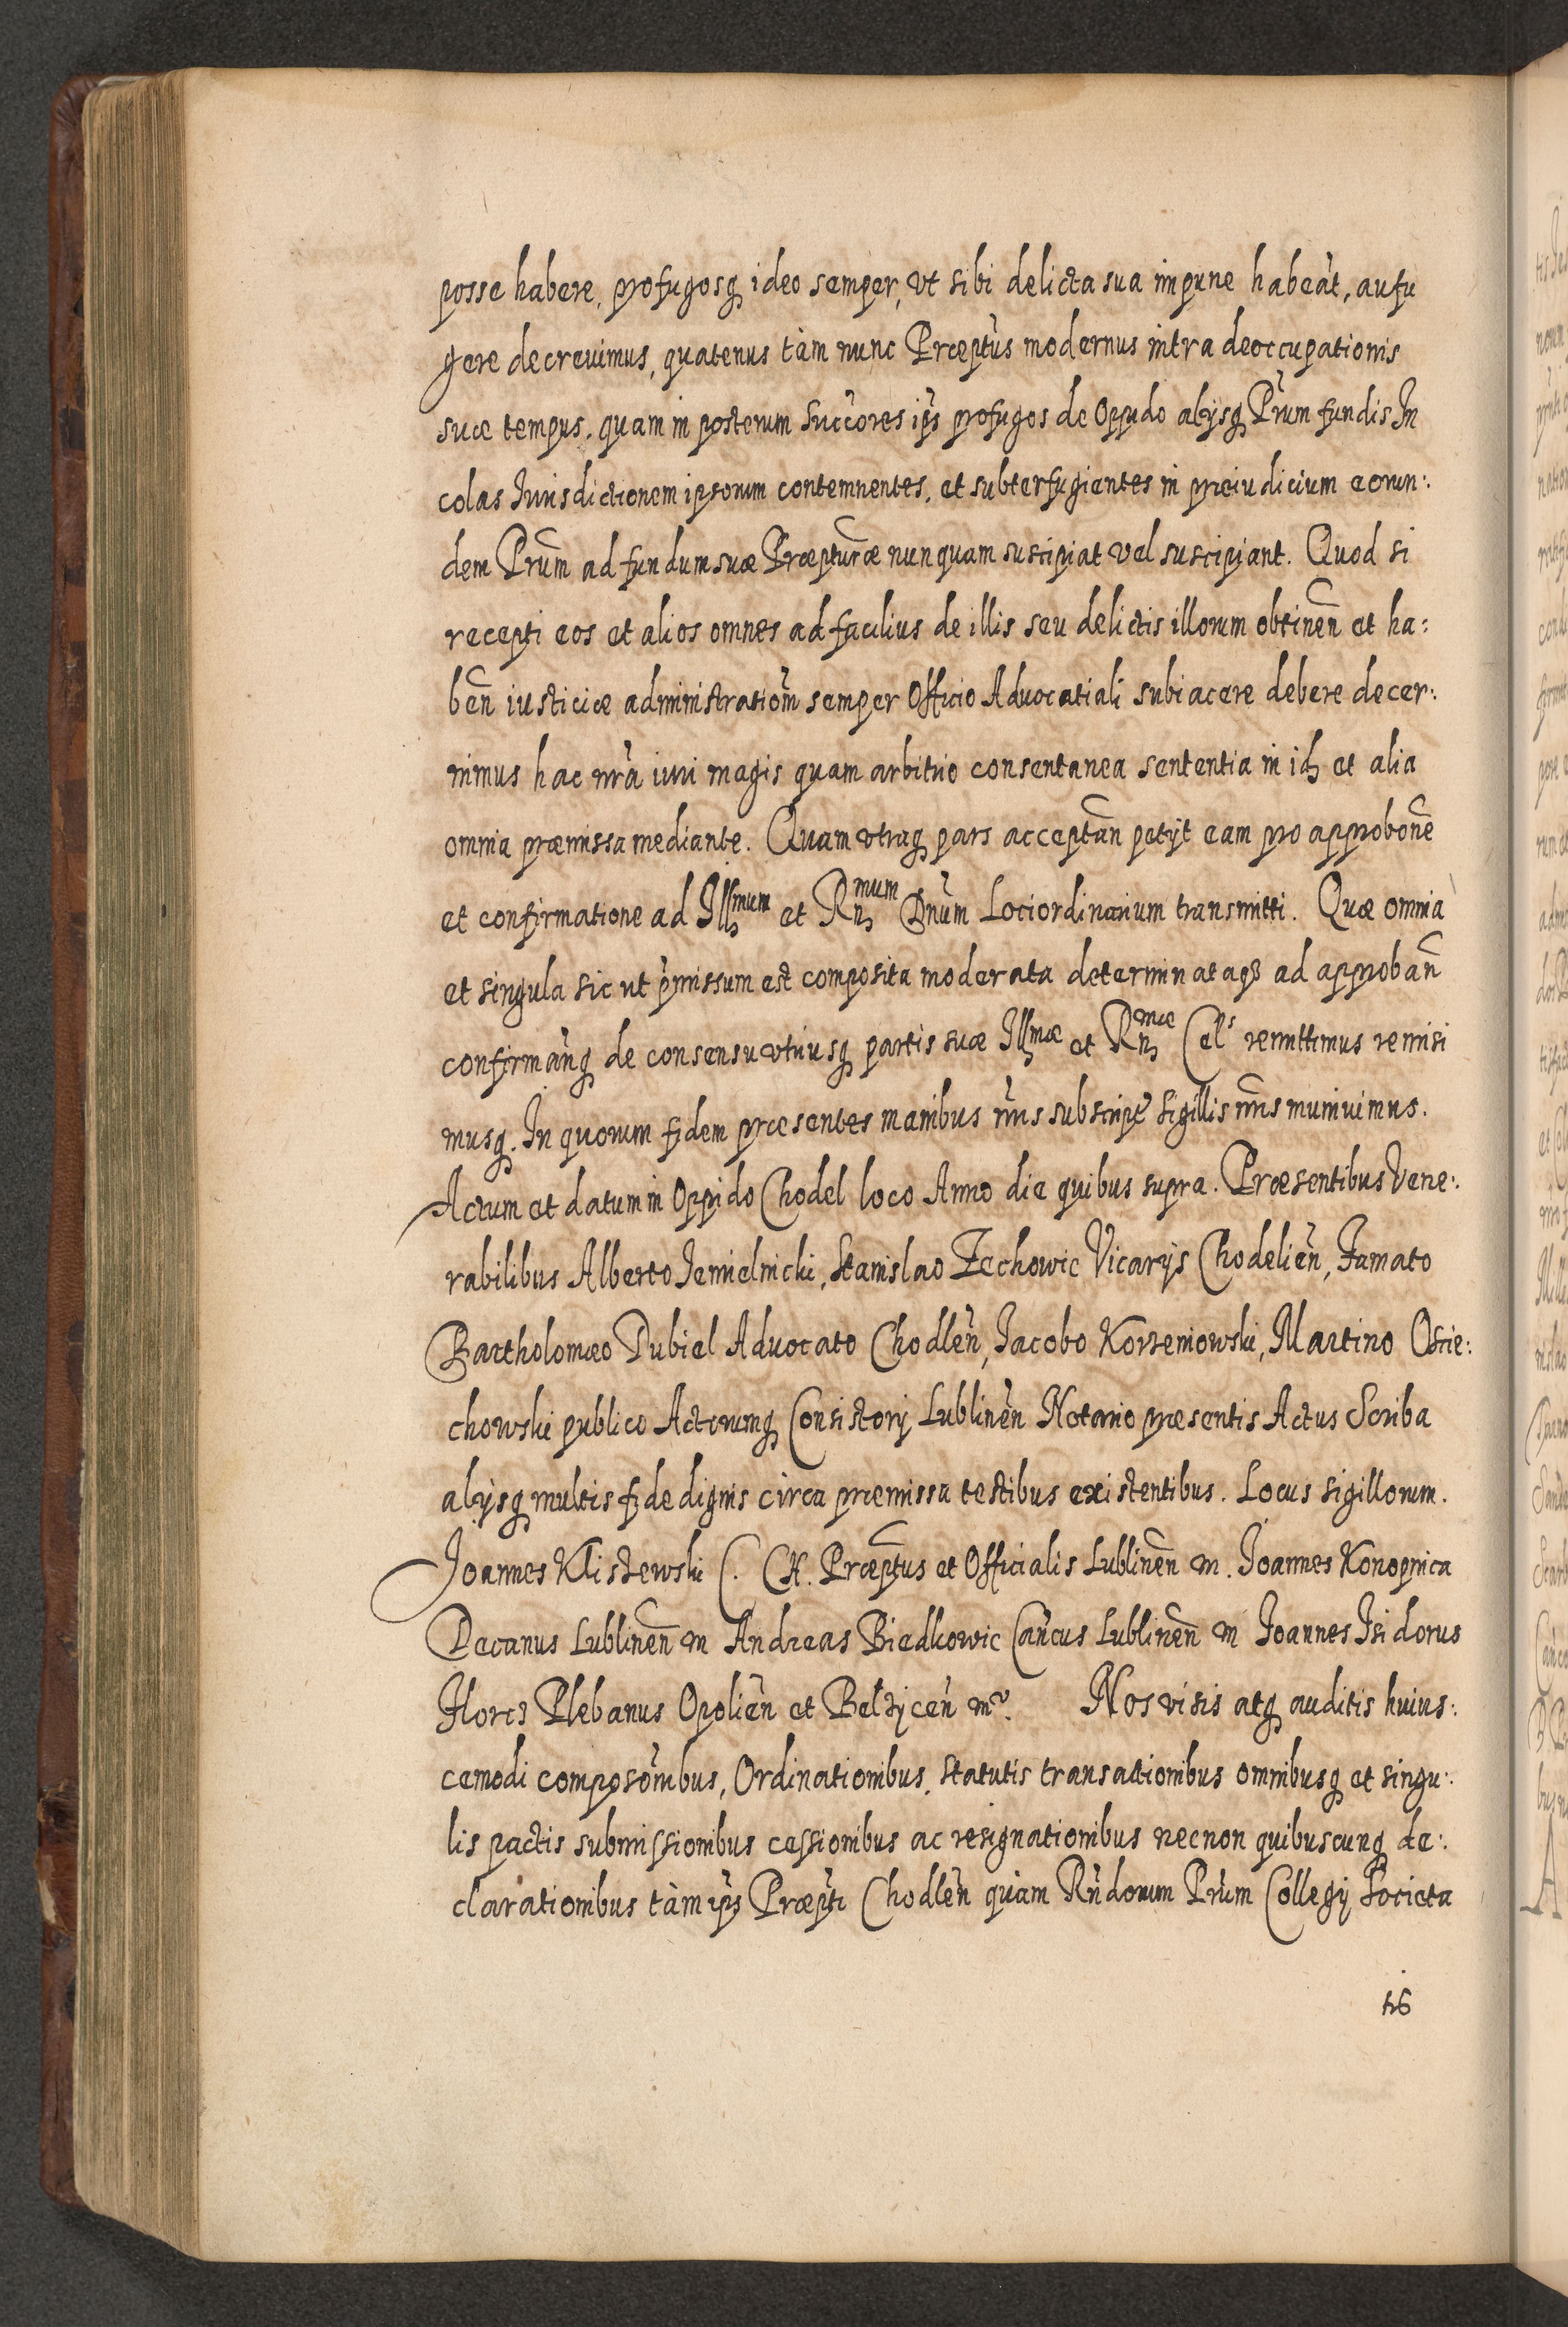 posse habere, profugosq ideo semper, vt sibi delicta sua impune habeāt, aufu
gere decreuimus, quatenus tàm nunc Præptūs modernus intra deoccupationis
suæ tempus, quam in posterum Succōres ip̄s profugos de Oppido alijsq Pr̄um fundis In
colas Iurisdictionem ipsorum contemnentes, et subterfugientes in præiudicium eorun:
dem Pr̄um ad fundum suæ Præpturæ nunquam suscipiat vel suscipiant. Quod si
recepti eos et alios omnes ad facilius de illis seu delictis illorum obtineñ et ha:
beñ iusticiæ administratiōm semper Officio Aduocatiali subiacere debere decer:
nimus hac nr̄a iuri magis quam arbitrio consentanea sententia in id et alia
omnia præmissa mediante. Quam vtraq pars acceptañ petijt eam pro approbōne
et confirmatione ad Illmum et Rnmum Dn̄um Lociordinarium transmitti. Quæ omnia
et singula sic ut p̄missum est composita moderata determinataqз ad approbañ
confirmāng de consensu vtriusq partis suæ Illmæ et Rnmæ Cels remittimus remisi
musq. In quorum fidem præsentes manibus nr̄is subscript sigillis nr̄is muniuimus.
Actum et datum in Oppido Chodel loco Anno die quibus supra. Præsentibus Vene:
rabilibus Alberto Jemielnicki, Stanislao Zechowic Vicarijs Chodelieñ, Famato
Bartholomæo Dubiel Aduocato Chodleñ, Jacobo Korzeniowski, Martino Oscie:
chowski publico Actorumq Consistorij Lublineñ Notario præsentis Actus Scriba
alijsq multis fide dignis circa præmissa testibus existentibus. Locus sigillorum.
Joannes Klistewski C. CH. Præptūs et Officialis Lublineñ m. Joannes Konopnica
Decanus Lublineñ m Andreas Biedkowic Cañcus Lublineñ m Joannes Isidorus
Plebanus Opolieñ et Belzyceñ m. Nos visis atq auditis huius:
cemodi composōnibus, Ordinationibus, statutis transactionibus omnibusq et singu:
lis pactis submissionibus cessionibus ac resignationibus necnon quibuscunq de:
clarationibus tàm ip̄s Præpti Chodleñ quàm Rn̄dorum Pr̄um Collegij Societa
tis